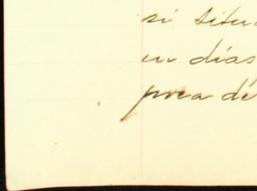 si situ
en días
poca dé